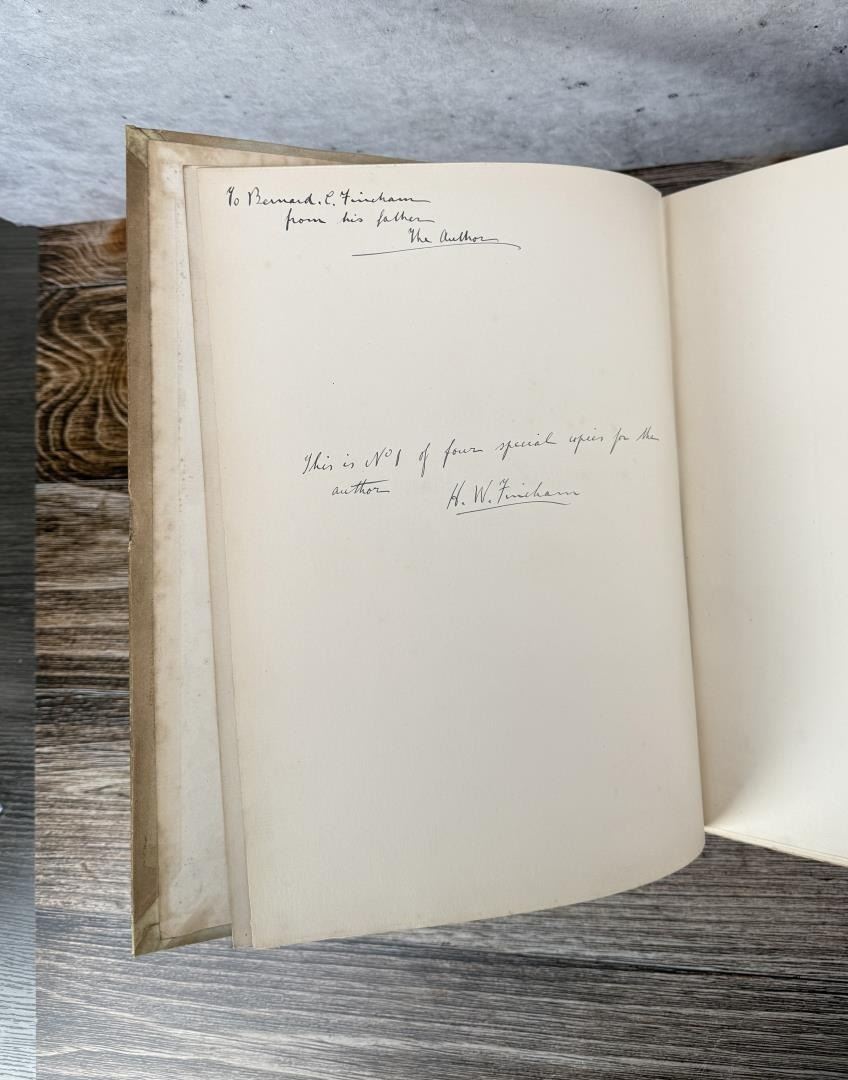 To Bernard. C. Fincham
from his father
The Author
This is No 1 of four special copies for the
author H. W. Fincham